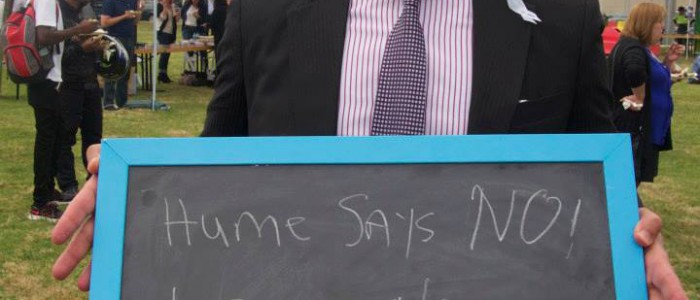 Hume Says NO!